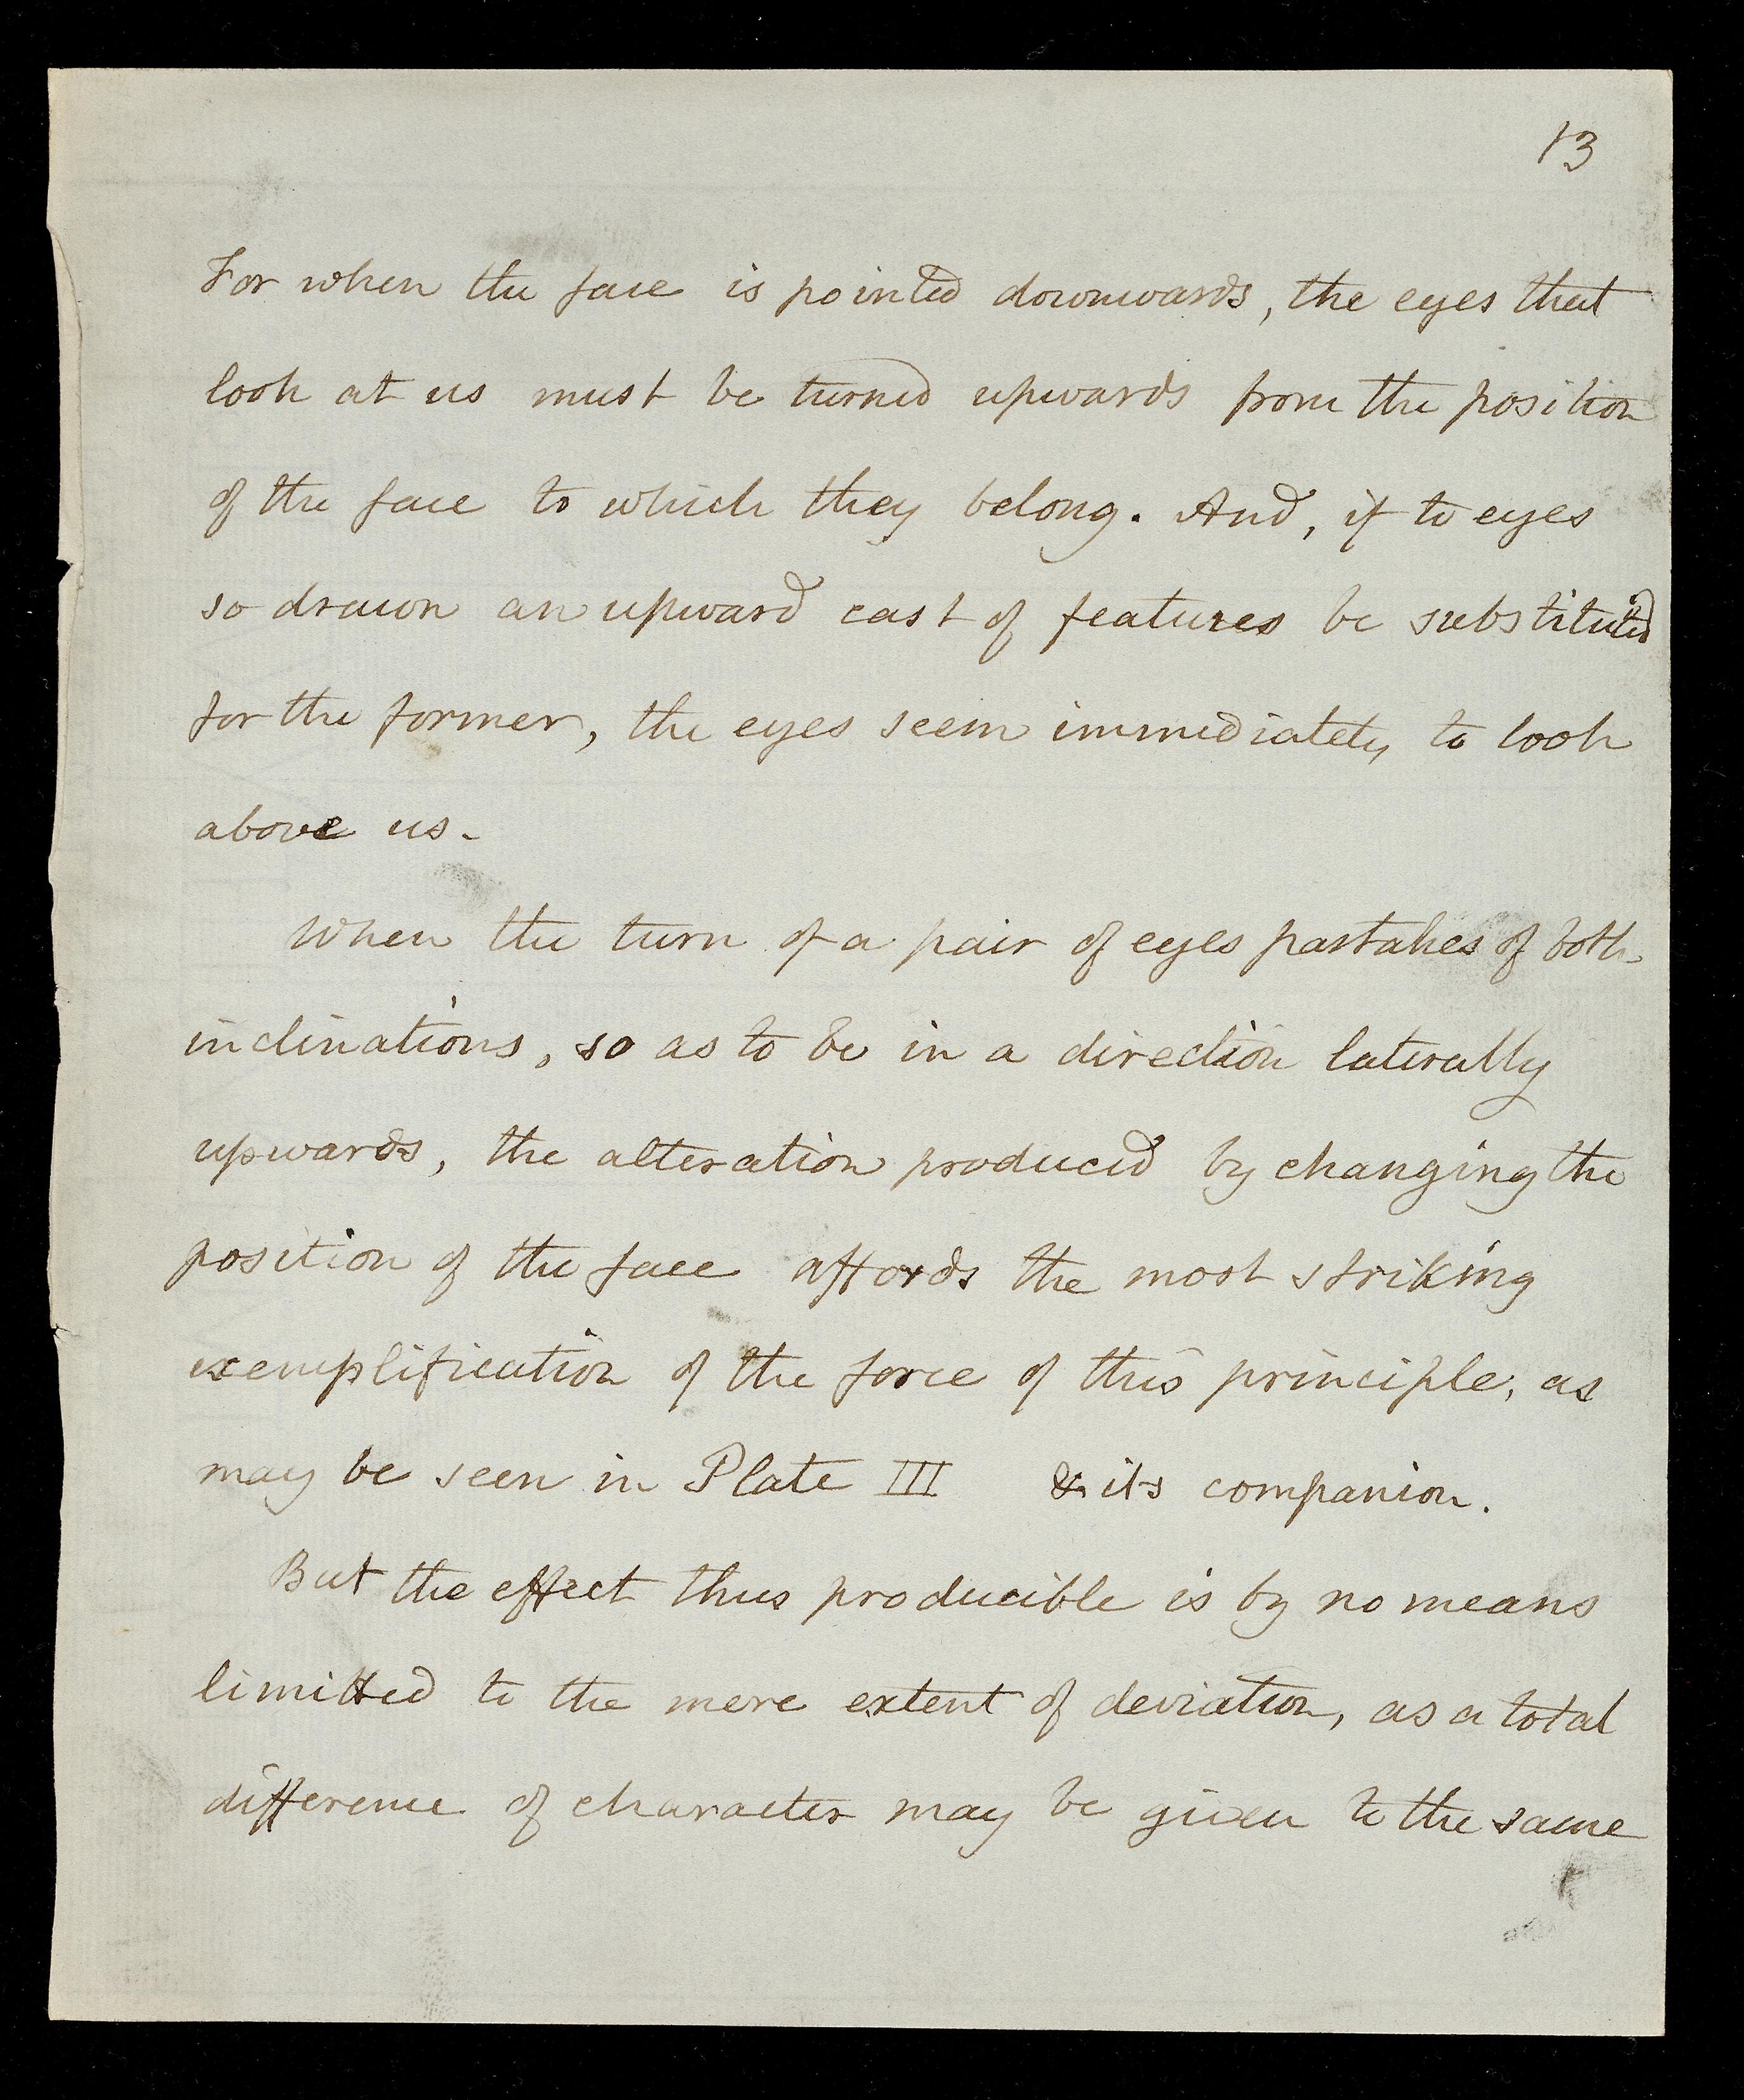 13
For when the face is pointed downwards, the eyes that
look at us must be turned upwards from the position
of the face to which they belong. And, if to eyes
so drawn an upward cast of features be substituted
for the former, the eyes seem immediately to look
above us.
When the turn of a pair of eyes partakes of both
inclinations, so as to be in a direction laterally
upwards, the alteration produced by changing the
position of the face affords the most striking
exemplification of the force of this principle, as
may be seen in Plate III & its companion.
But the effect thus producible is by no means
limitted to the mere extent of deviation, as a total
difference of character may be given to the same